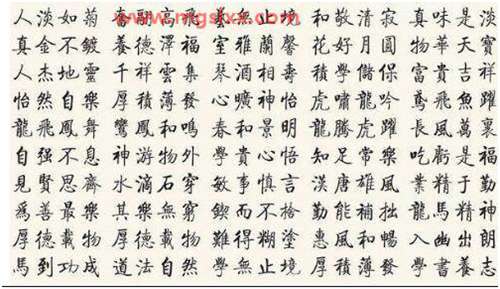 人淡如菊 高飛 無止境 和敬清寂 真味是淡
真金不鍍 養德澤福 室雅蘭馨 花好月圓 物華天寶
人杰地靈 千祥雲集 琴酒相壽 積學儲保 富貴吉祥
怡然自樂 厚積薄發 心曠神怡 虎嘯龍吟 鳶飛魚躍
龍飛鳳舞 鸞鳳和鳴 春和景明 龍騰虎躍 長風萬裏
自强不息 神游物外 學貴心悟 知足常樂 吃虧是福
見賢思齊 水滴石穿 敏事慎言 漢唐雄風 業精于勤
爲善最樂 其樂無窮 鍥而不捨 勤能補拙 龍馬精神
厚德載物 厚德載物 難得糊塗 惠風和暢 入幽出朗
馬到功成 道法自然 學無止境 厚積薄發 學書養志